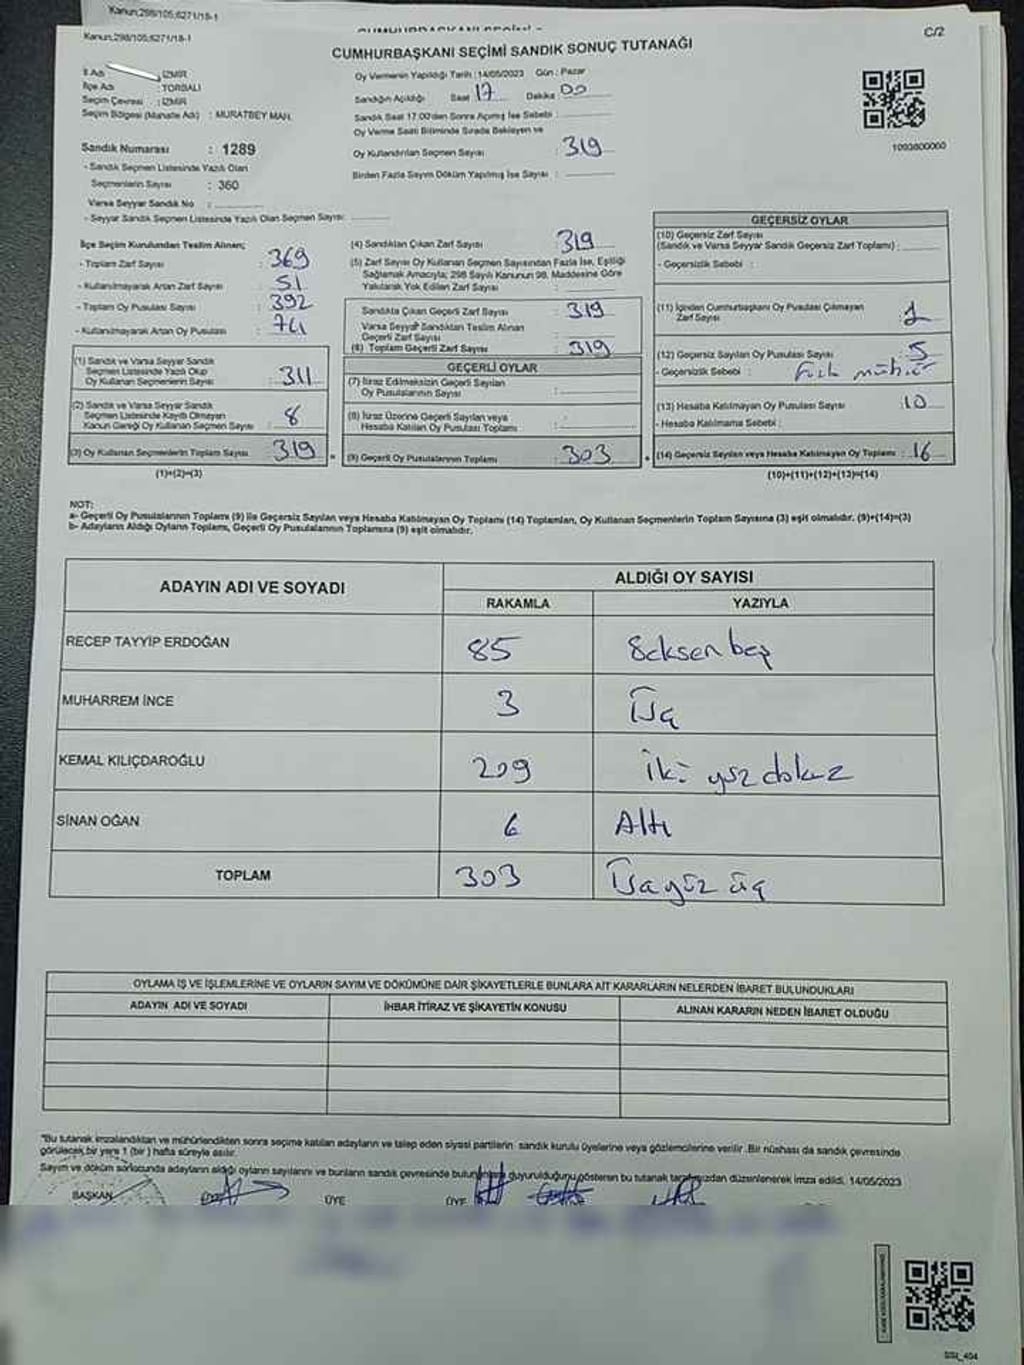 Kanun;298/105;6271/18-1
Kanun;298/105;6271/18-1
C/2
CUMHURBAŞKANI SEÇİMİ SANDIK SONUÇ TUTANAĞI
İl Adı : İZMİR
İlçe Adı : TORBALI
Seçim Çevresi : İZMİR
Seçim Bölgesi (Mahalle Adı) : MURATBEY MAH.
Sandık Numarası : 1289
- Sandık Seçmen Listesinde Yazılı Olan
Seçmenlerin Sayısı : 360
Varsa Seyyar Sandık No :
- Seyyar Sandık Seçmen Listesinde Yazılı Olan Seçmen Sayısı:
Oy Vermenin Yapıldığı Tarih :14/05/2023 Gün : Pazar
Sandığın Açıldığı Saat 17 Dakika 00
Sandık Saat 17:00'den Sonra Açılmış İse Sebebi :
Oy Verme Saati Bitiminde Sırada Bekleyen ve
Oy Kullandırılan Seçmen Sayısı : 319
Birden Fazla Sayım Döküm Yapılmış İse Sayısı :
1093800000
İlçe Seçim Kurulundan Teslim Alınan;
- Toplam Zarf Sayısı : 369
- Kullanılmayarak Artan Zarf Sayısı : 51
- Toplam Oy Pusulası Sayısı : 392
- Kullanılmayarak Artan Oy Pusulası :
(1) Sandık ve Varsa Seyyar Sandık
Seçmen Listesinde Yazılı Olup
Oy Kullanan Seçmenlerin Sayısı : 311
(2) Sandık ve Varsa Seyyar Sandık
Seçmen Listesinde Kayıtlı Olmayan
Kanun Gereği Oy Kullanan Seçmen Sayısı : 8
(3) Oy Kullanan Seçmenlerin Toplam Sayısı : 319
(1)+(2)=(3)
(4) Sandıktan Çıkan Zarf Sayısı : 319
(5) Zarf Sayısı Oy Kullanan Seçmen Sayısından Fazla İse, Eşitliği
Sağlamak Amacıyla; 298 Sayılı Kanunun 98. Maddesine Göre
Yakılarak Yok Edilen Zarf Sayısı :
Sandıkta Çıkan Geçerli Zarf Sayısı : 319
Varsa Seyyar Sandıktan Teslim Alınan
Geçerli Zarf Sayısı :
(6) Toplam Geçerli Zarf Sayısı : 319
GEÇERLİ OYLAR
(7) İtiraz Edilmeksizin Geçerli Sayılan
Oy Pusulalarının Sayısı :
(8) İtiraz Üzerine Geçerli Sayılan veya
Hesaba Katılan Oy Pusulası Toplamı :
(9) Geçerli Oy Pusulalarının Toplamı : 303
GEÇERSİZ OYLAR
(10) Geçersiz Zarf Sayısı
(Sandık ve Varsa Seyyar Sandık Geçersiz Zarf Toplamı) :
- Geçersizlik Sebebi :
(11) İçinden Cumhurbaşkanı Oy Pusulası Çıkmayan
Zarf Sayısı : 1
(12) Geçersiz Sayılan Oy Pusulası Sayısı : 5
- Geçersizlik Sebebi :
(13) Hesaba Katılmayan Oy Pusulası Sayısı : 10
- Hesaba Katılmama Sebebi :
(14) Geçersiz Sayılan veya Hesaba Katılmayan Oy Toplamı : 16
(10)+(11)+(12)+(13)=(14)
NOT:
a- Geçerli Oy Pusulalarının Toplamı (9) ile Geçersiz Sayılan veya Hesaba Katılmayan Oy Toplamı (14) Toplamları, Oy Kullanan Seçmenlerin Toplam Sayısına (3) eşit olmalıdır. (9)+(14)=(3)
b- Adayların Aldığı Oyların Toplamı, Geçerli Oy Pusulalarının Toplamına (9) eşit olmalıdır.
ADAYIN ADI VE SOYADI
ALDIĞI OY SAYISI
RAKAMLA YAZIYLA
RECEP TAYYİP ERDOĞAN 85 Seksen beş
MUHARREM İNCE 3 Üç
KEMAL KILIÇDAROĞLU 209 İki yüz dokuz
SİNAN OĞAN 6 Altı
TOPLAM 303 Üçyüz üç
OYLAMA İŞ VE İŞLEMLERİNE VE OYLARIN SAYIM VE DÖKÜMÜNE DAİR ŞİKAYETLERLE BUNLARA AİT KARARLARIN NELERDEN İBARET BULUNDUKLARI
ADAYIN ADI VE SOYADI İHBAR İTİRAZ VE ŞİKAYETİN KONUSU ALINAN KARARIN NEDEN İBARET OLDUĞU
"Bu tutanak imzalandıktan ve mühürlendikten sonra seçime katılan adayların ve talep eden siyasi partilerin sandık kurulu üyelerine veya gözlemcilerine verilir. Bir nüshası da sandık çevresinde
görülecek bir yere 1 (bir) hafta süreyle asılır.
Sayım ve döküm sonucunda adayların aldığı oyların sayılarını ve bunların sandık çevresinde duyurulduğunu gösteren bu tutanak tarafımızdan düzenlenerek imza edildi. 14/05/2023
BAŞKAN ÜYE ÜYE